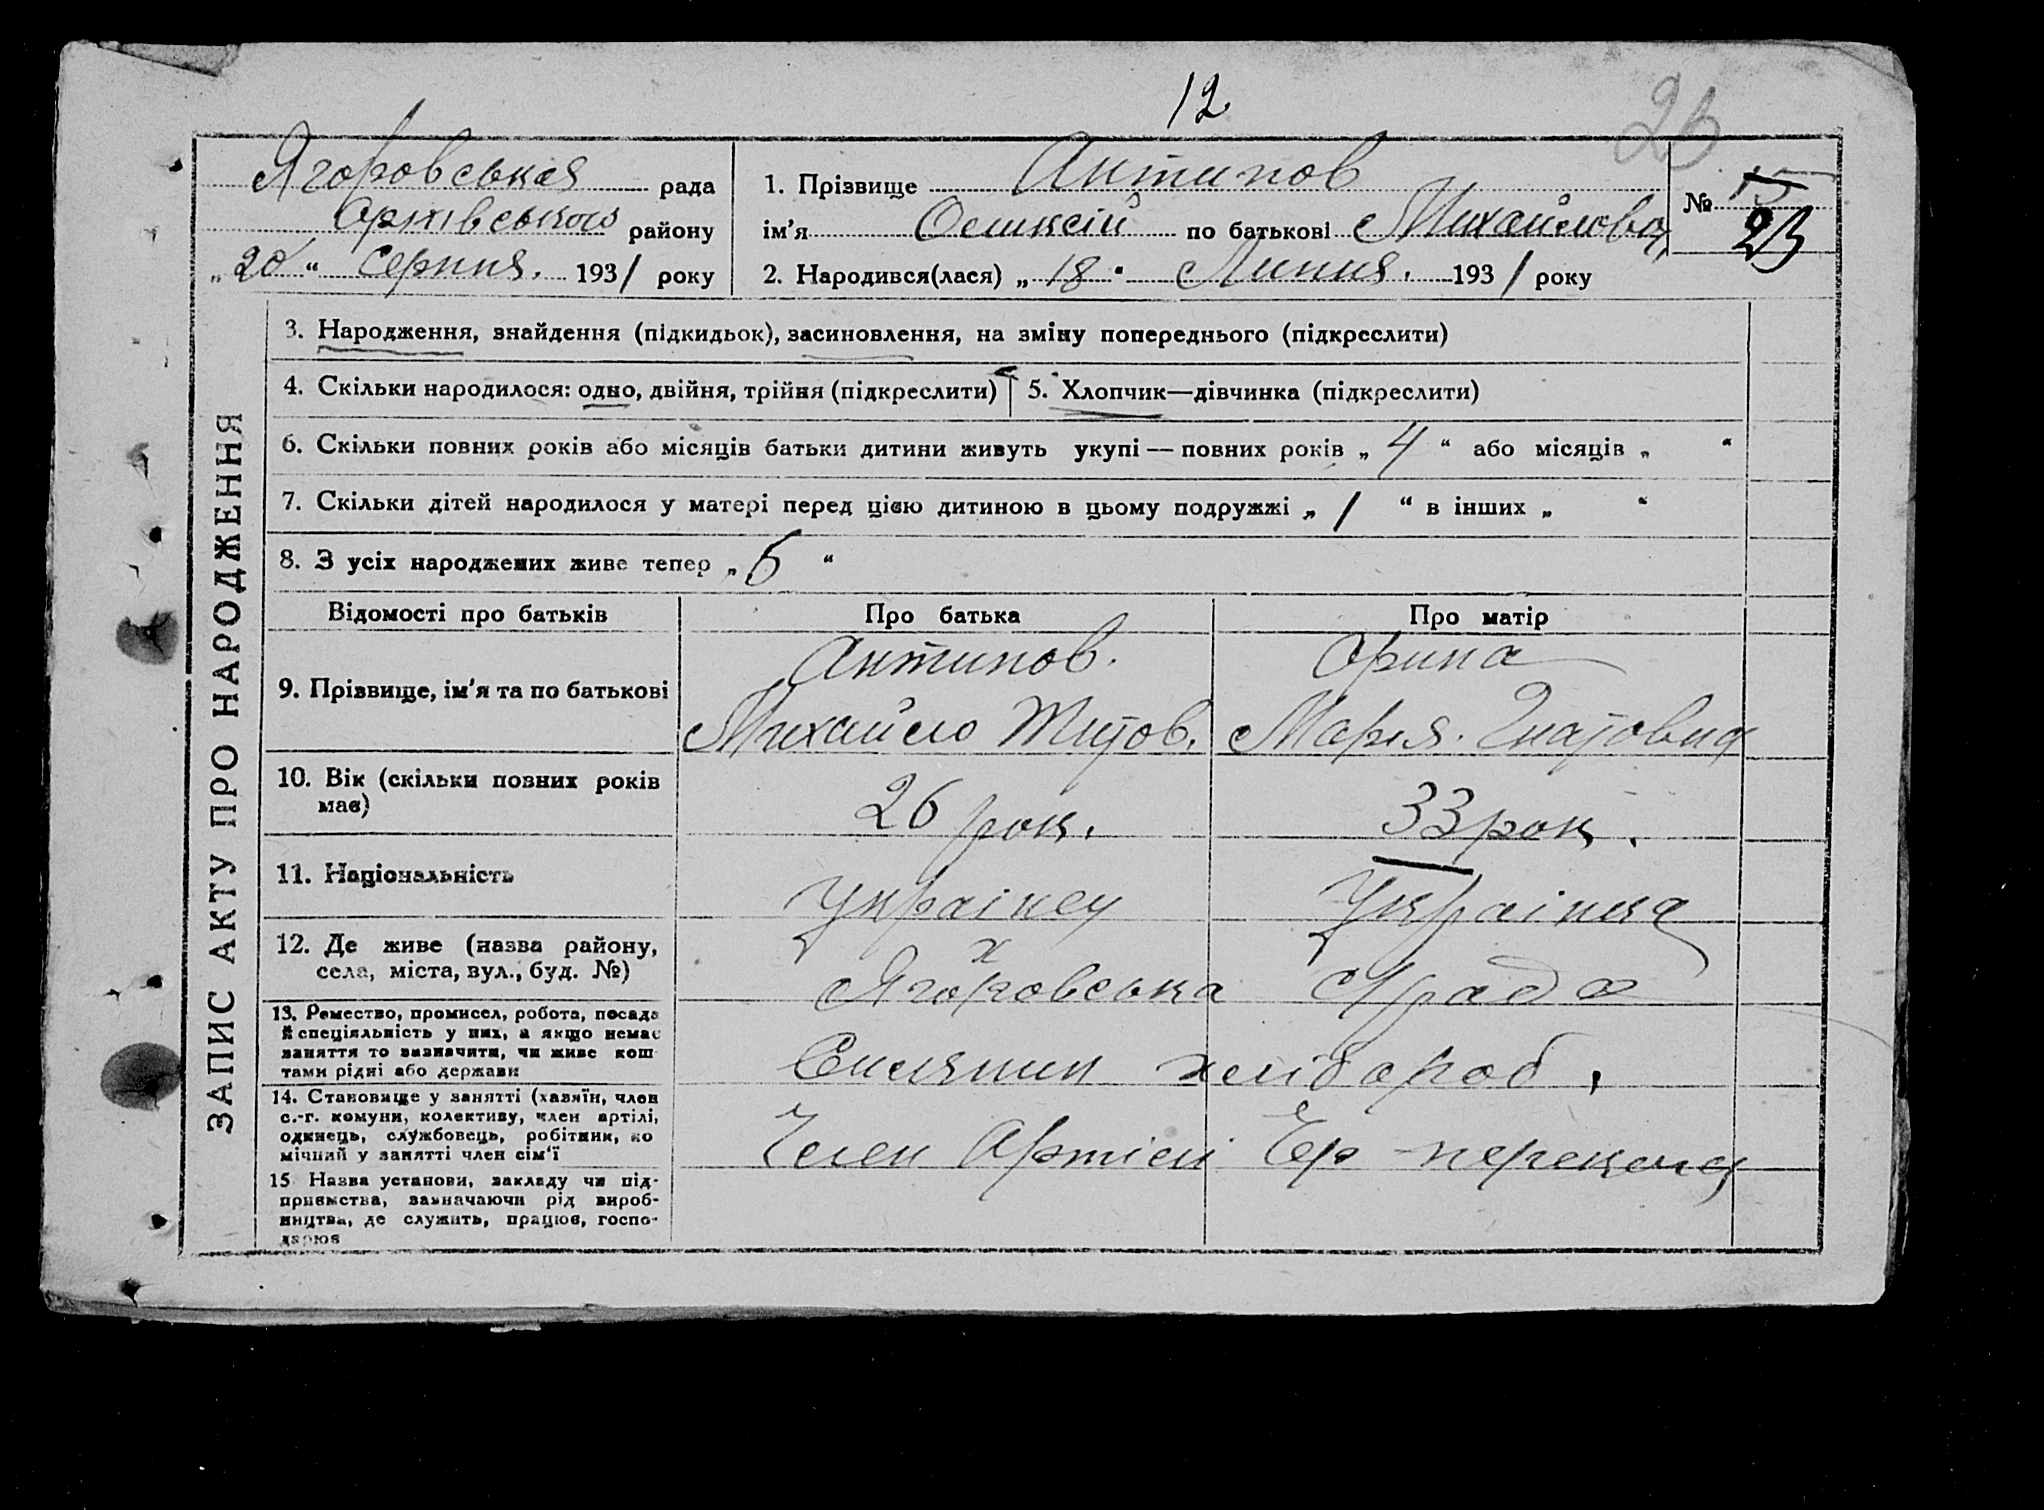 12
23
Ягоровська рада
Орхівського району
„20“ Серпня. 1931 року
1. Прізвище Антипов
ім'я Оликсій по батькові Михайлова
№ 15
23
2. Народився(лася) „18“ Липня. 1931 року
ЗАПИС АКТУ ПРО НАРОДЖЕННЯ
3. Народження, знайдення (підкидьок), засиновлення, на зміну попереднього (підкреслити)
4. Скільки народилося: одно, двійня, трійня (підкреслити) 5. Хлопчик—дівчинка (підкреслити)
6. Скільки повних років або місяців батьки дитини живуть укупі — повних років „ 4 “ або місяців „ “
7. Скільки дітей народилося у матері перед цією дитиною в цьому подружжі „ 1 “ в інших „ “
8. З усіх народжених живе тепер „ 5 “
Відомості про батьків Про батька Про матір
9. Прізвище, ім'я та по батькові
Антипов. Орина
Михайло Титов. Марія. Гнатовна
10. Вік (скільки повних років
має)
26 рок. 33 рок.
11. Національність
Українец Українка
12. Де живе (назва району,
села, міста, вул., буд. №)
х
Ягоровська С/рада
13. Ремество, промисел, робота, посада
й спеціяльність у них, а якщо немає
заняття то зазначити, чи живе кош-
тами рідні або держави
Силянин хлібороб.
14. Становище у занятті (хазяїн, член
с.-г. комуни, колективу, член артілі,
одинець, службовець, робітник, по
мічний у занятті член сім'ї
Член Артілі Чер-перекопа
15 Назва установи, закладу чи під-
приємства, зазначаючи рід вироб-
ництва, де служить, працює, госпо-
дарює